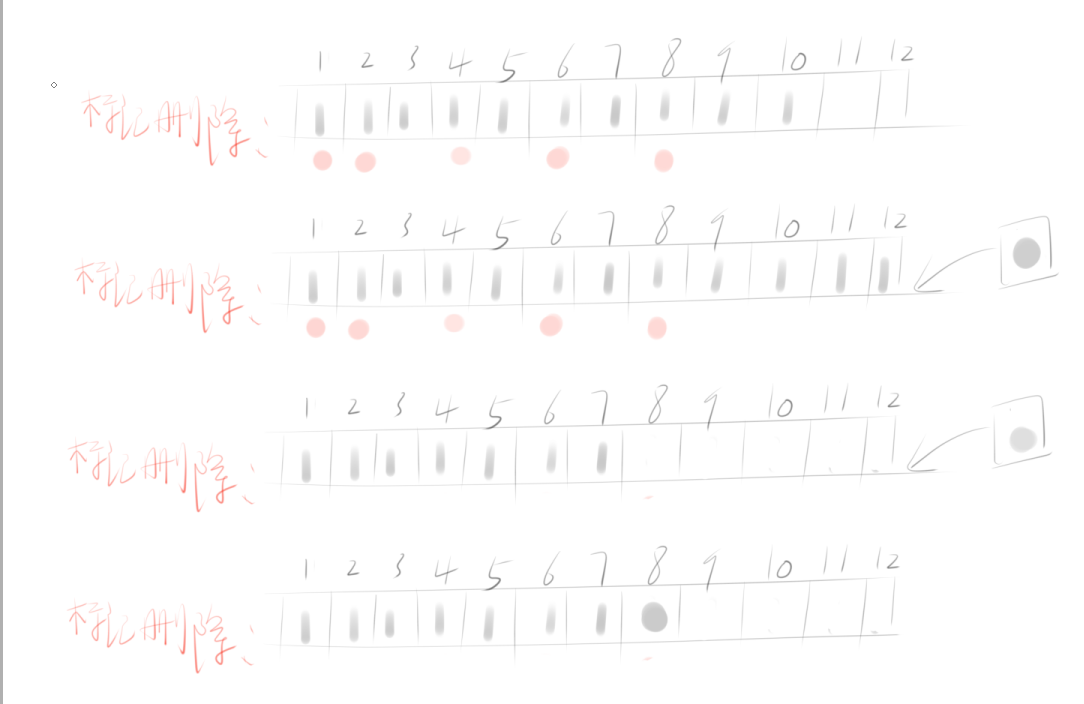 1 2 3 4 5 6 7 8 9 10 11 12
标记删除:
1 2 3 4 5 6 7 8 9 10 11 12
标记删除:
1 2 3 4 5 6 7 8 9 10 11 12
标记删除:
1 2 3 4 5 6 7 8 9 10 11 12
标记删除: